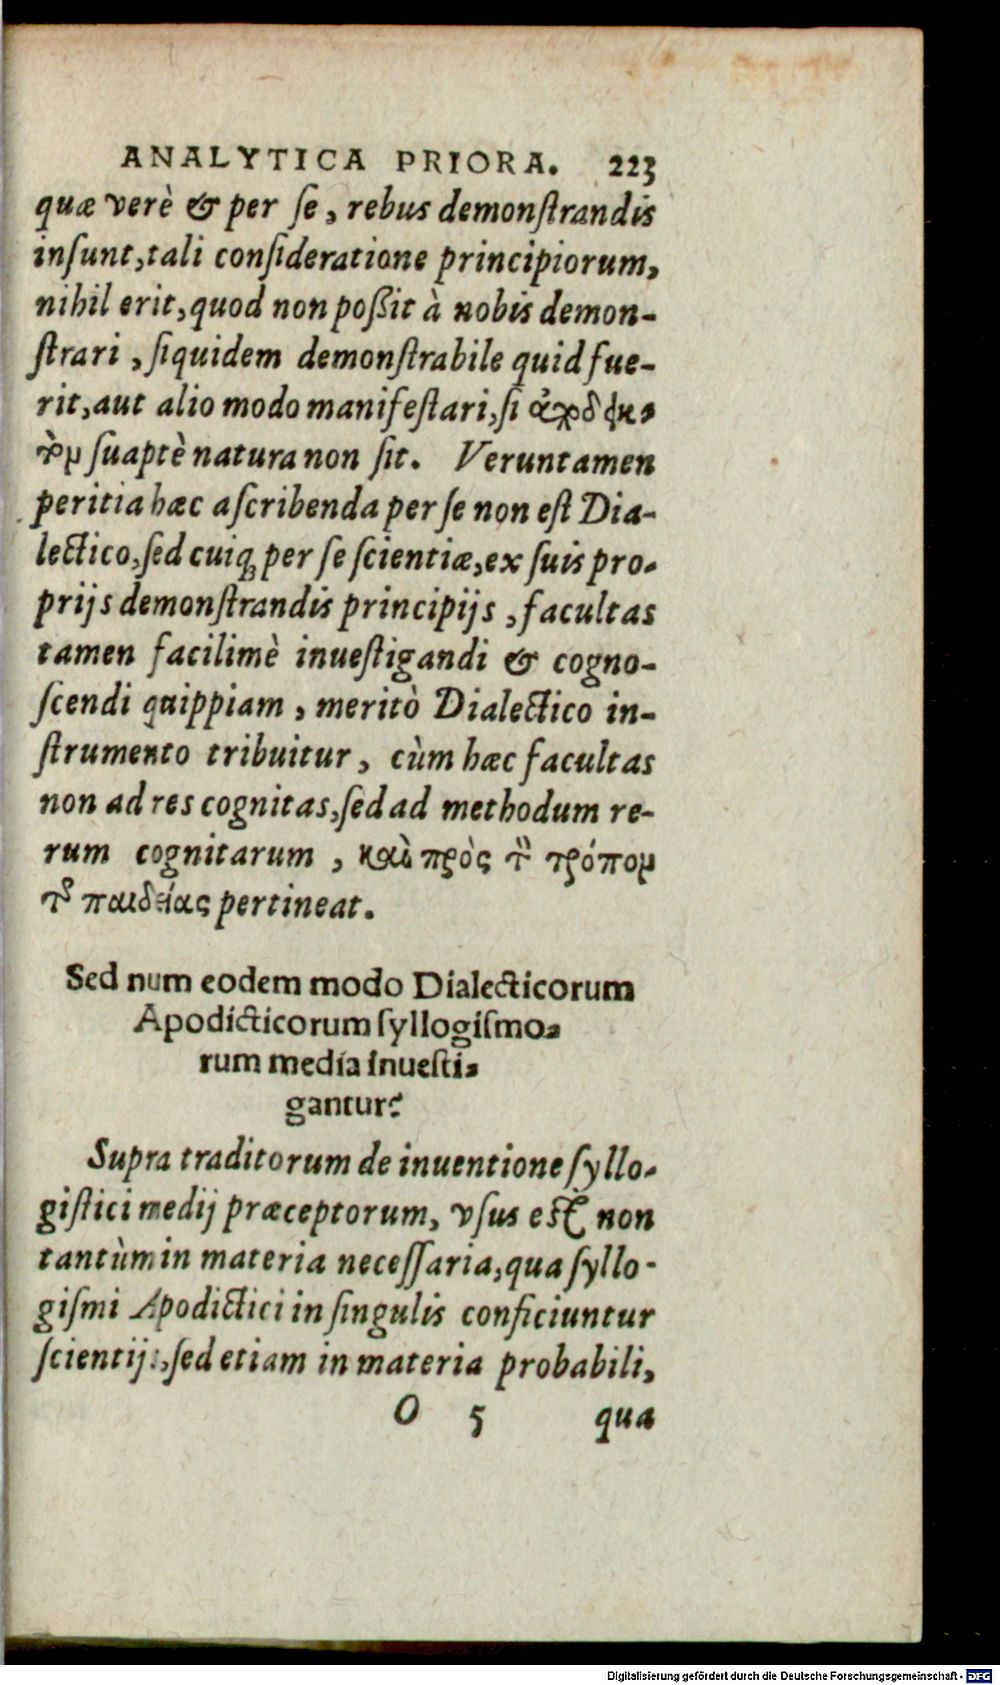 ANALYTICA PRIORA. 223
quæ verè & per ſe, rebus demonſtrandis
inſunt, tali conſideratione principiorum,
nihil erit, quod non poßit à nobis demon-
ſtrari, ſiquidem demonſtrabile quid fue-
rit, aut alio modo manifeſtari, ſi
ſuaptè natura non ſit. Veruntamen
peritia hæc aſcribenda per ſe non eſt Dia-
lectico, ſed cuiq; per ſe ſcientiæ, ex ſuis pro-
prijs demonſtrandis principijs, facultas
tamen facilimè inueſtigandi & cogno-
ſcendi quippiam, meritò Dialectico in-
ſtrumento tribuitur, cùm hæc facultas
non ad res cognitas, ſed ad methodum re-
rum cognitarum, καὶ πρὸς τὸν τρόπον
τῆς παιδείας pertineat.
Sed num eodem modo Dialecticorum
Apodicticorum ſyllogiſmo-
rum media inueſti-
gantur?
Supra traditorum de inuentione ſyllo-
giſtici medij præceptorum, vſus eſt non
tantùm in materia neceſſaria, qua ſyllo-
giſmi Apodictici in ſingulis conficiuntur
ſcientijs, ſed etiam in materia probabili,
O 5 qua
Digitalisierung gefördert durch die Deutsche Forschungsgemeinschaft - DFG